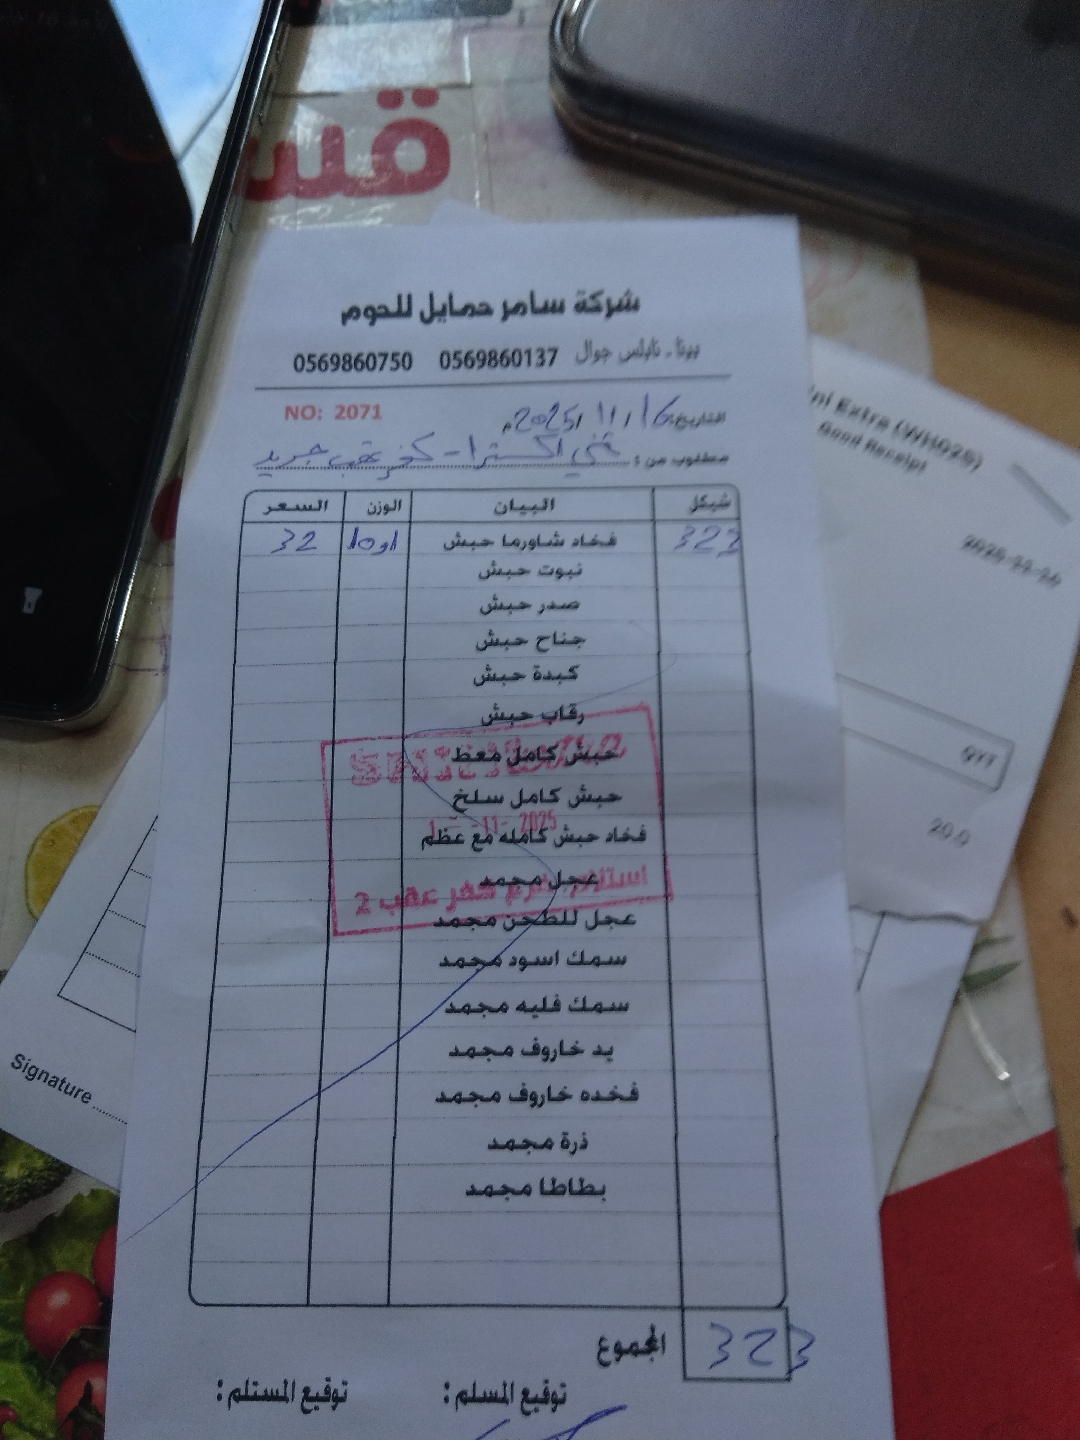 قس
شركة سامر حمايل للحوم
بيتا - نابلس جوال 0569860137 0569860750
NO: 2071
التاريخ: 16 / 11 / 2025م
مطلوب من: اكسترا - كفر عقب جديد
شيكل البيان الوزن السعر
323 فخاد شاورما حبش 10,1 32
نبوت حبش
صدر حبش
جناح حبش
كبدة حبش
رقاب حبش
حبش كامل معظ
حبش كامل سلخ
-11- 2025
فخاد حبش كامله مع عظم
عجل مجمد
استلام فرع كفر عقب 2
عجل للطحن مجمد
سمك اسود مجمد
سمك فليه مجمد
يد خاروف مجمد
فخده خاروف مجمد
ذرة مجمد
بطاطا مجمد
المجموع 323
توقيع المسلم: توقيع المستلم:
ini Extra (WH025)
Good Receipt
QTY
20.0
Signature